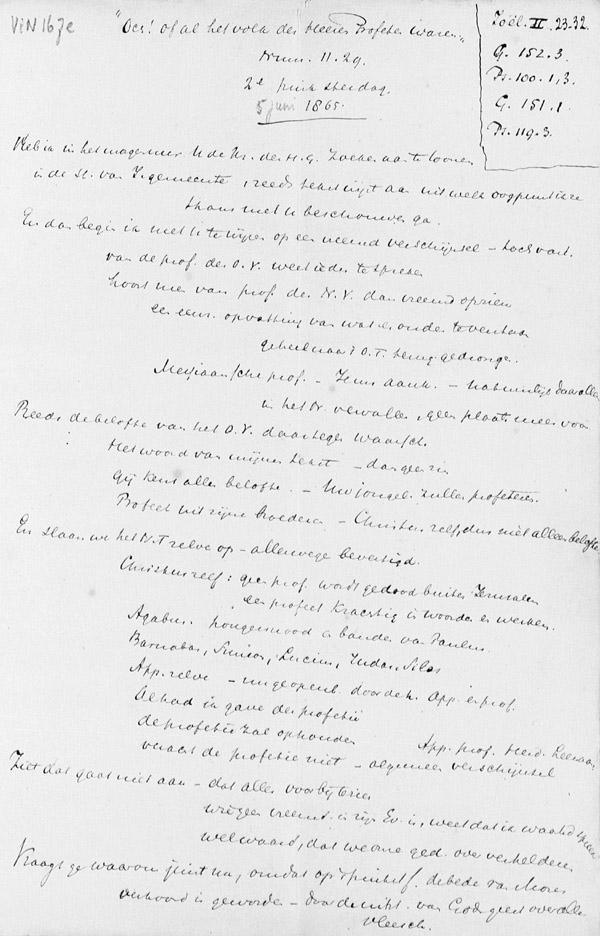 ViN 167e
"Och! of al het volk des Heeren Profeten waren"
Num. 11.29.
2e pinksterdag.
5 juni 1865.
Joël. II. 23-32.
G. 152.3.
Ps. 100.1,3.
G. 151.1.
Ps. 119.3.
Heb ik in het U de des H.G. te toonen
in de van J. gemeente, reeds aan uit welk oogpunt ik ze
thans met U beschouwen ga.
En dan begin ik met U te wijzen op een vreemd verschijnsel – toch vast.
van de prof. des O.V. weet ieder te spreken
hoort men van prof. des N.V. dan vreemd opzien
een opvatting van wat er onder te verstaan
geheel naar 't O.T. terug gedrongen.
Messiaansche prof. – Jezus aank. – natuurlijk daar alles
in het N. vervallen, geen plaats meer voor
Reeds de belofte van het O.V. daartegen waarsch.
Het woord van mijnen tekst – dan geen zin
Gij kent alle belofte. – Uw jongel. zullen profeteren.
Profeet uit zijne broederen – Christus zelf, dus niet alleen belofte
En slaan we het N.T. zelve op – allerwege bevestigd.
Christus zelf: geen prof. wordt gedood buiten Jerusalem
een profeet krachtig in woorden en werken.
Agabus. hongersnood en banden van Paulus.
Barnabas, Simeon, Lucius, Judas, Silas
App. zelve – geopenb. door de h. App. en prof.
Al had ik gave der profetie
de profetie zal ophouden
App. prof. Herd. Leeraar
veracht de profetie niet – algemeen verschijnsel
Ziet dat gaat niet aan – dat alles voorbijzien
vreemd in zijn Ev. is, weet dat ik waarheid spreek
wel waard, dat we onze ged. over verhelderen
Vraagt ge waarom juist nu, omdat op 't pinksterf. de bede van Mozes
verhoord is geworden – door de uitst. van Gods geest over alle
vleesch.